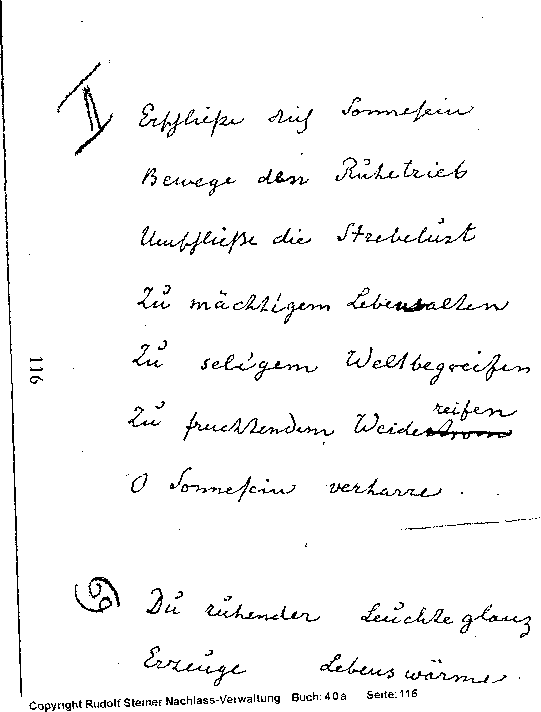 ♊ Erschließe dich Sonnesein
Bewege den Ruhetrieb
Umschließe die Strebelust
Zu mächtigem Lebewalten
116
Zu seligem Weltbegreifen
reifen
Zu fruchtendem Werdestrom
O Sonnesein verharre.
♋ Du ruhender Leuchteglanz
Erzeuge Lebenswärme.
Copyright Rudolf Steiner Nachlass-Verwaltung Buch: 40a Seite: 116